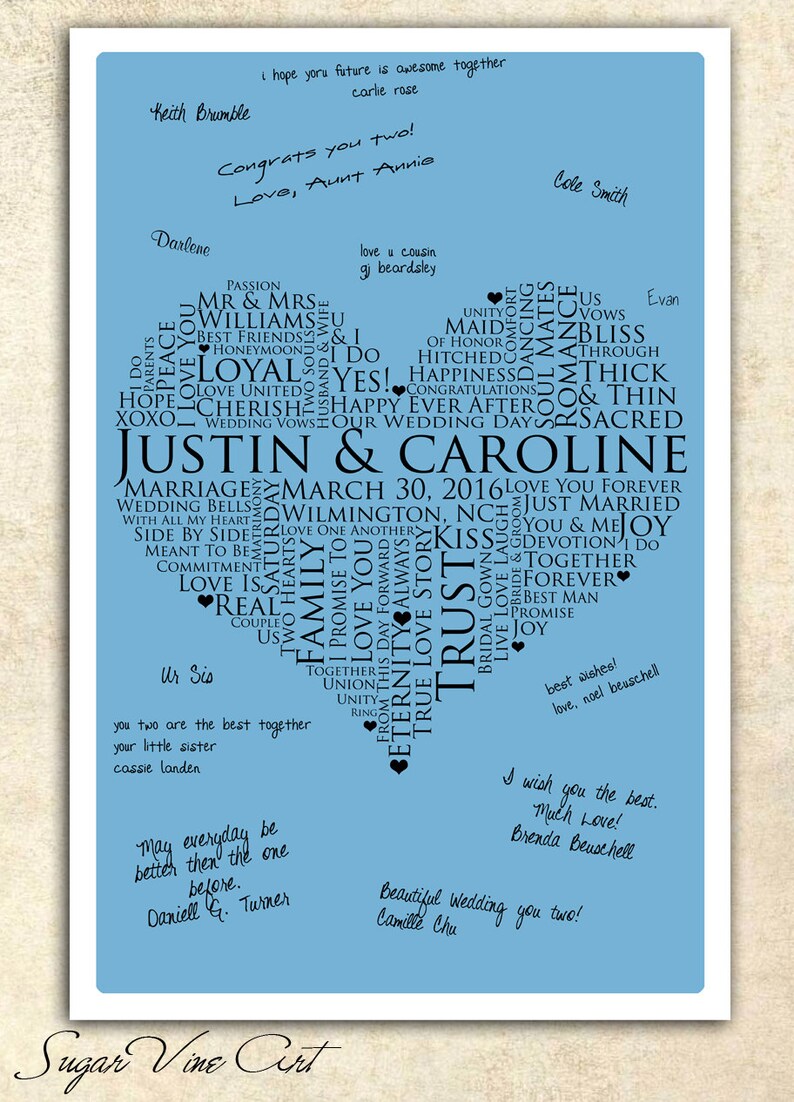 i hope yoru future is awesome together
carlie rose
Keith Brumble
Congrats you two!
Love, Aunt Annie
Cole Smith
Darlene
love u cousin
gj beardsley
Evan
Passion
Mr & Mrs
Williams
Best Friends
Honeymoon
Loyal
Love United
Cherish
Wedding Vows
I Do
Parents
Peace
Hope
XOXO
I Love You
Two Souls
Husband & Wife
U
& I
I Do
Yes!
Happy Ever After
Our Wedding Day
unity
Maid
Of Honor
Hitched
Happiness
Congratulations
Comfort
Dancing
Soul Mates
Romance
Us
Vows
Bliss
Through
Thick
& Thin
Sacred
Justin & Caroline
Marriage
Wedding Bells
With All My Heart
Side By Side
Meant To Be
Commitment
Love Is
Real
Couple
Us
Matrimony
Saturday
March 30, 2016
Wilmington, NC
Love One Another
Kiss
Two Hearts
Family
I Promise To
Love You
From This Day Forward
Always
Eternity
True Love Story
Trust
Bridal Gown
Live Love Laugh
Bride & Groom
Together
Union
Unity
Ring
Love You Forever
Just Married
You & Me
Joy
Devotion
I Do
Together
Forever
Best Man
Promise
Joy
Ur Sis
best wishes!
love, noel beuschell
you two are the best together
your little sister
cassie landen
I wish you the best.
Much Love!
Brenda Beuschell
May everyday be
better then the one
before.
Daniell G. Turner
Beautiful Wedding you two!
Camille Chu
Sugar Vine Art